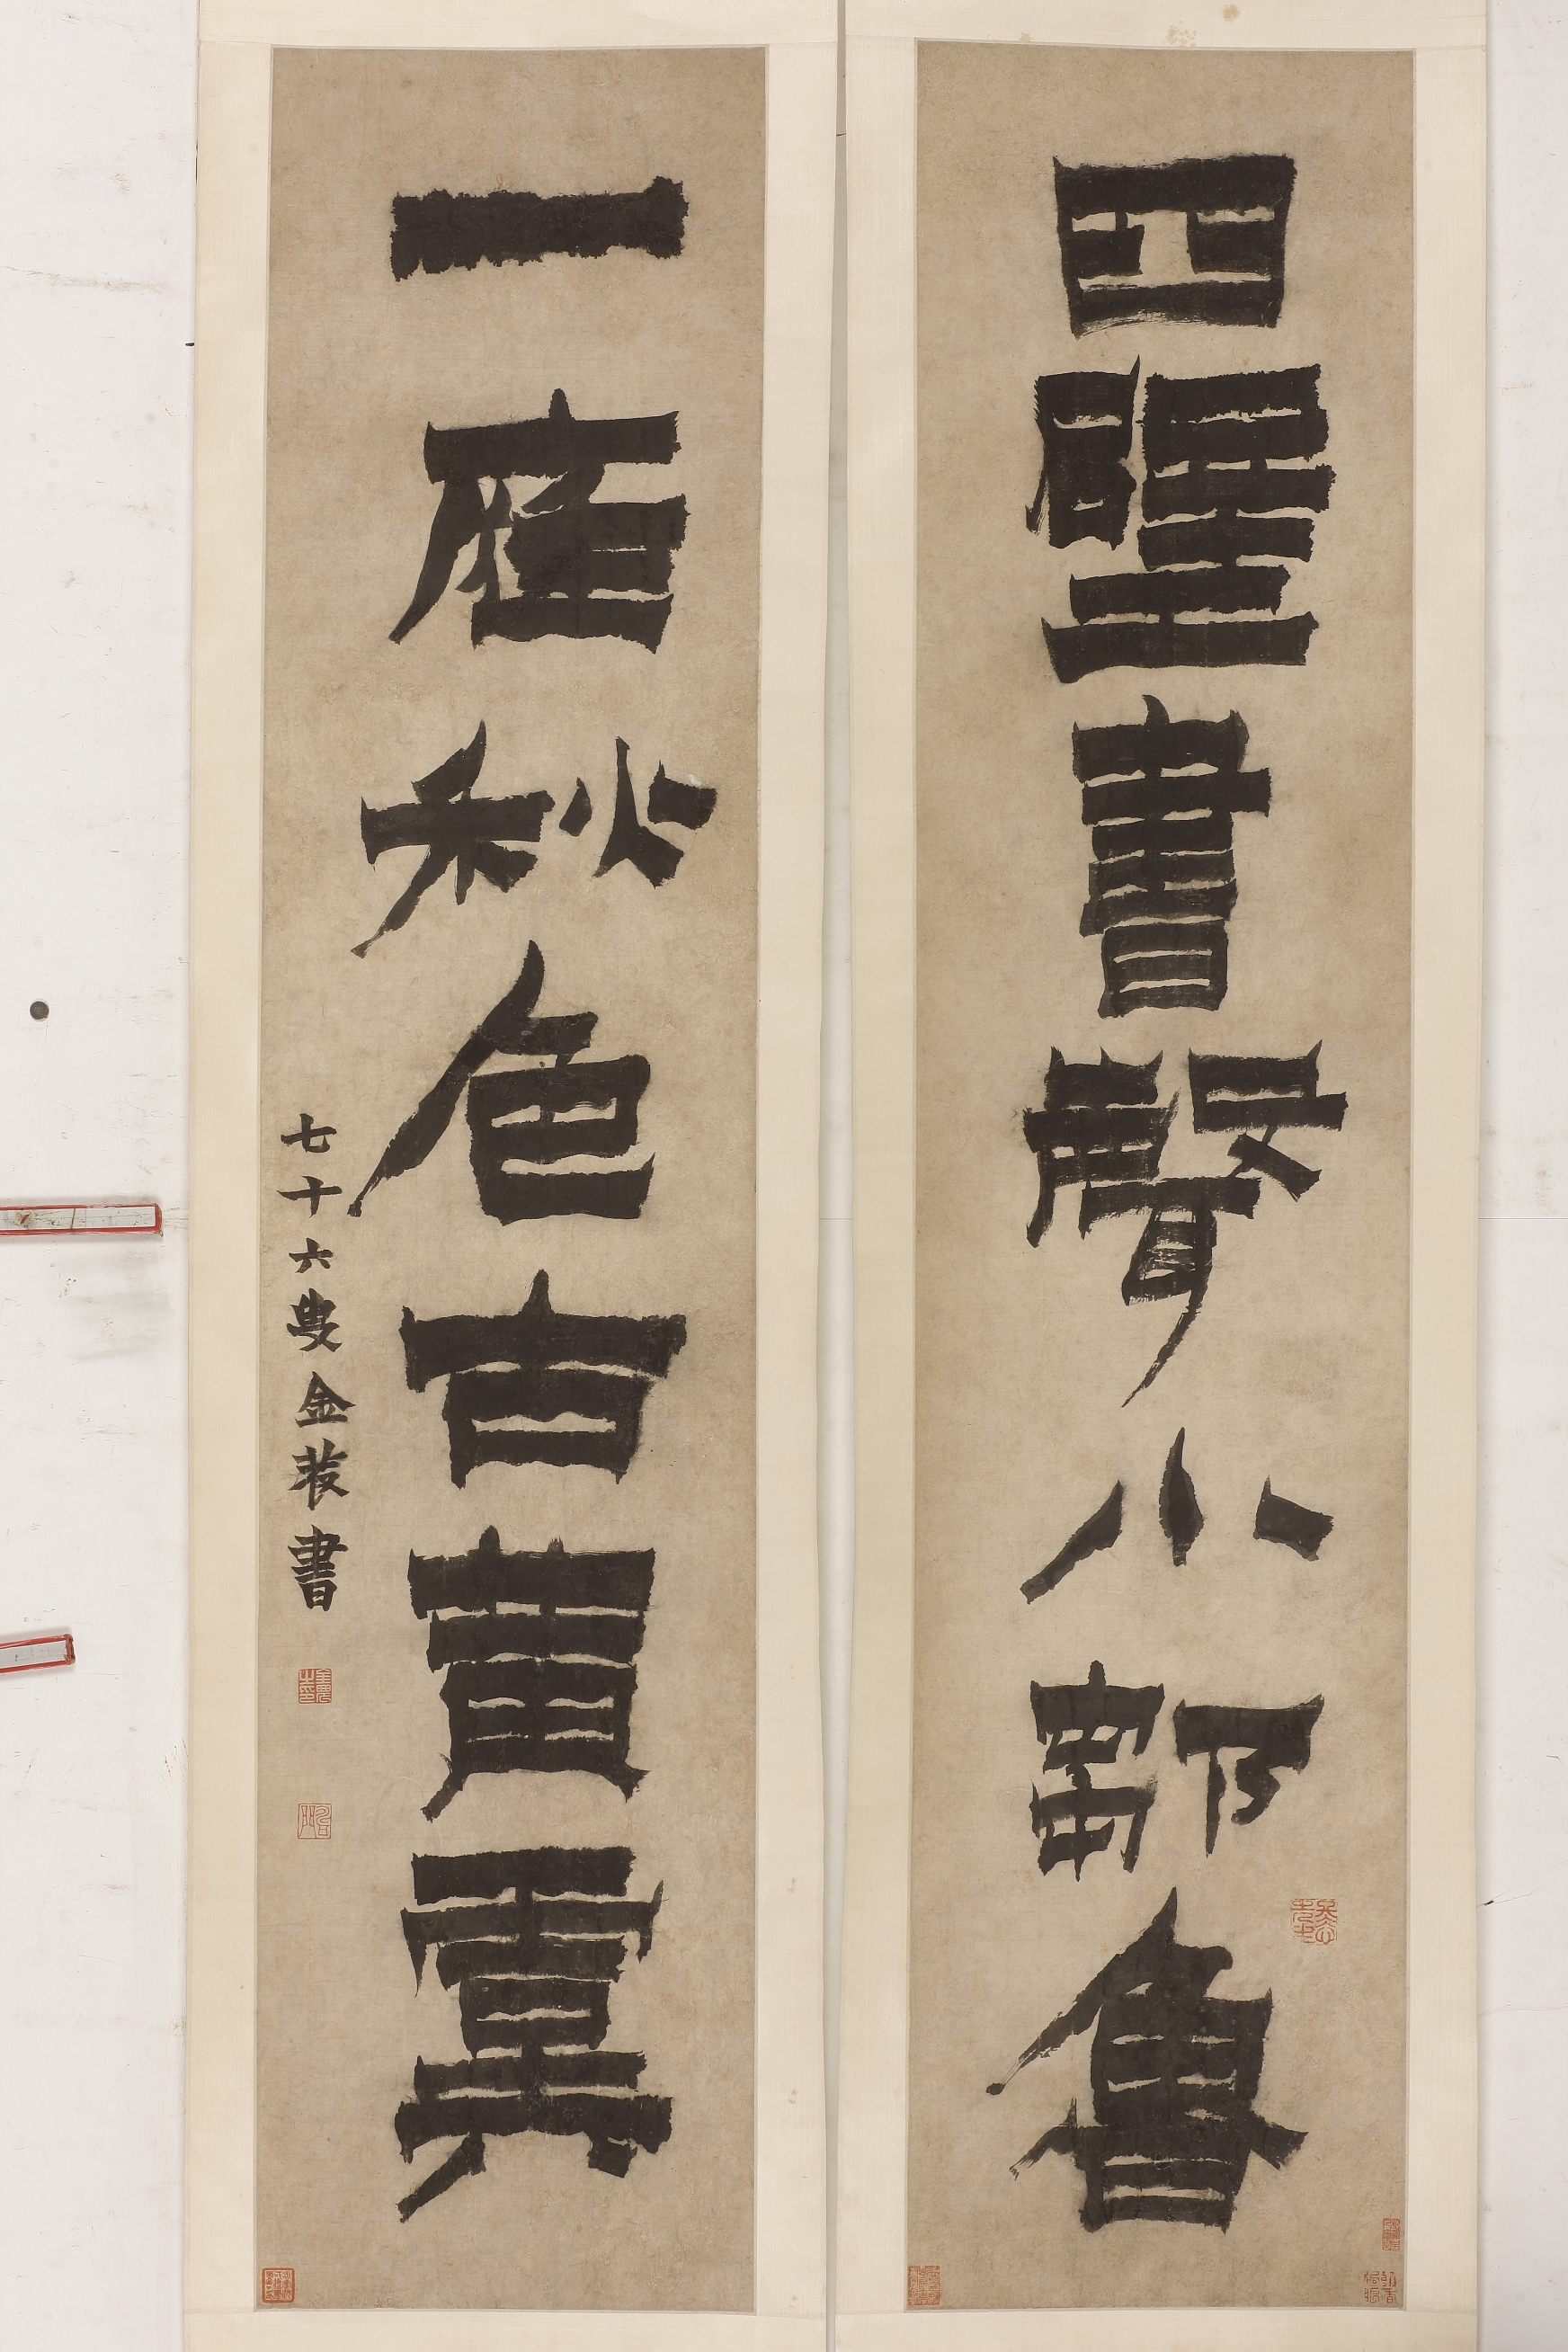 四壁書聲小鄒魯
一庭秋色古黃虞
七十六叟金農書